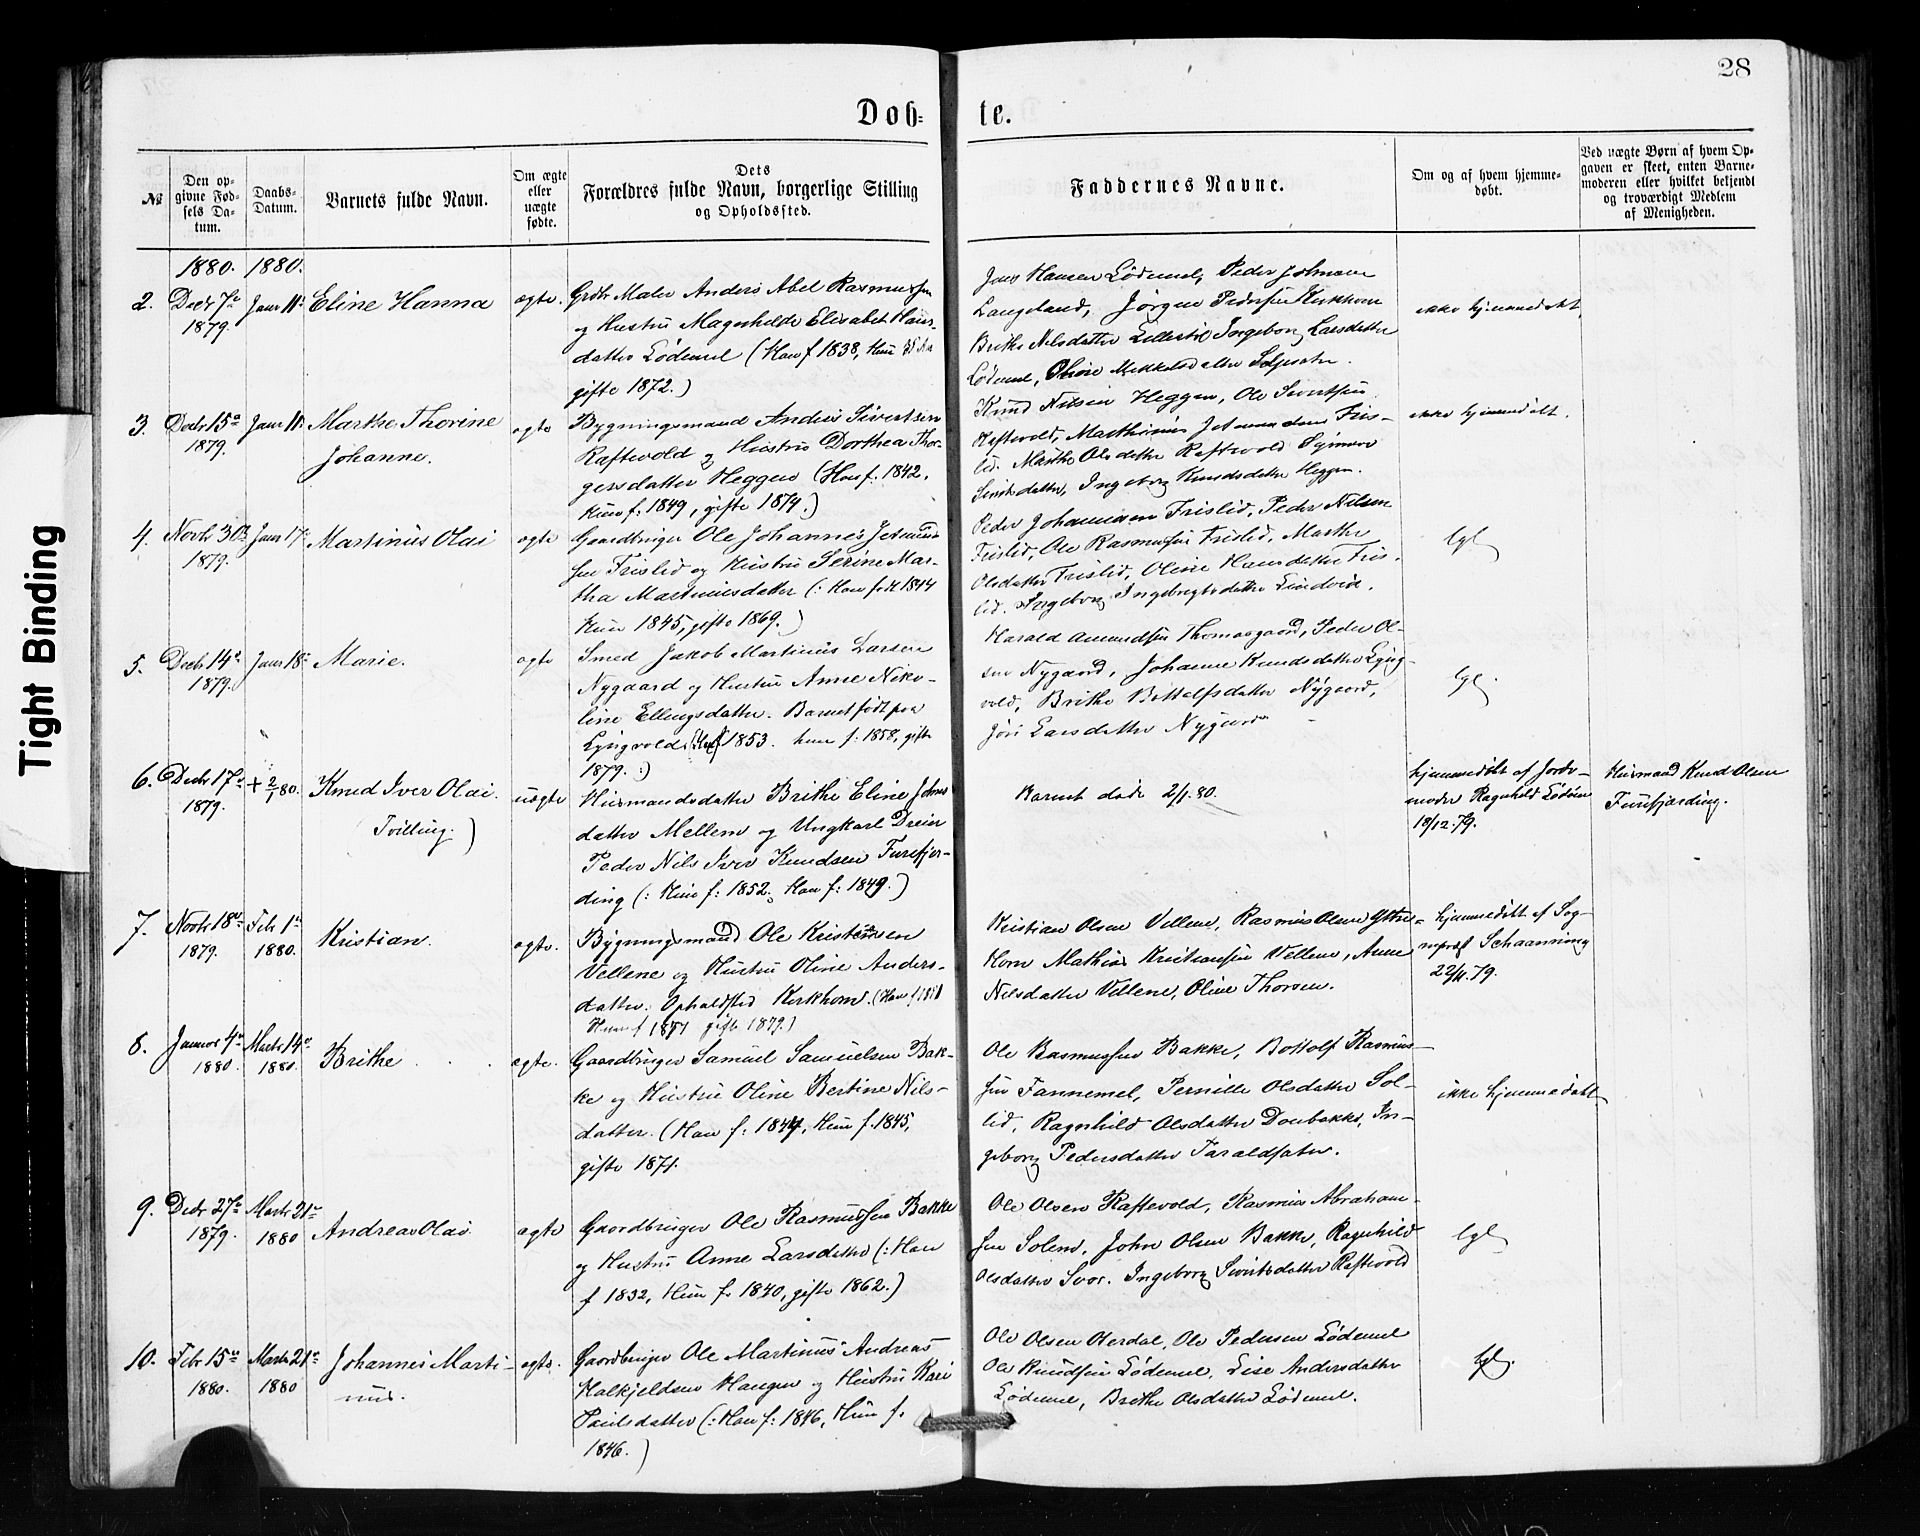 28
Døb- te.
№
Den opgivne Fødsels Datum.
Daabs-Datum.
Barnets fulde Navn.
Om ægte eller uægte fødte.
Dets Forældres fulde Navn, borgerlige Stilling og Opholdssted.
Faddernes Navne.
Om og af hvem hjemmedøbt.
Ved uægte Børn af hvem Opgaven er skeet, enten Barnemoderen eller hvilket bekjendt og troværdigt Medlem af Menigheden.
1880. 1880.
2. Decbr 7de 1879. Janr 11te Eline Hanna ægte.
Maler Anders Abel Rasmussen
og Hustru Magnhilde Elisabet Hans-
datter Lødemel (Han f 1838, Hun
gifte 1872.)
Jens Hansen Lødemel, Peder Johnsen
Langeland, Jørgen Pedersen Kirkhorn
Brithe Nilsdatter Ingeborg Larsdatter
Lødemel, Mikkelsdatter
ikke hjemmedøbt
3. Decbr 15de 1879. Janr 11te Marthe Thorine
Johanne.
ægte
Bygningsmand Anders Sivertsen
Raftevold og Hustru Dorthea Thor-
gersdatter Heggen (Han f. 1842,
Hun f: 1849, gifte 1874.)
Knud Nilsen Heggen, Ole Sivertsen
Raftevold, Marthinus Fris-
lid. Marthe Olsdatter Raftevold
Sivertsdatter, Ingeborg Knudsdatter Heggen.
ikke hjemmedøbt.
4. Novbr 30te 1879. Janr 17de Martinus Olai ægte
Gaardbruger Ole Johannes
sen Frislid og Hustru Serine Mar-
tha Martinusdatter (: Han født 1844
Hun 1845, gifte 1869.)
Peder Johannesen Frislid, Peder Nilsen
Frislid, Ole Rasmussen Frislid, Marthe
Olsdatter Frislid, Oline Hansdatter Fris-
lid. Ingeborg Ingebrigtsdatter
lgl
5. Decbr 14de 1879. Janr 18de Marie. ægte
Smed Jakob Martinus Larsen
Nygaard og Hustru Anne Niko-
line Ellingsdatter. Barnet født paa
Lyngvold (Han f 1853. hun f: 1858, gifte
1879.:)
Harald Amundsen Thomasgaard, Peder Ol-
sen Nygaard, Johanne Knudsdatter Lyng-
vold, Brithe Bottolfsdatter Nygaard,
Jøri Larsdatter Nygaard
lgl.
6. Decbr 17de 1879. + 2/1 80. Knud Iver Olai.
Tvilling.)
uægte
Husmandsdatter Brithe Eline Johns
datter Mellem og Ungkarl Dreier
Peder Nils Iver Knudsen Furefjer-
ding (: Hun f: 1852, Han f: 1849.)
Barnet døde 2/1. 80.
hjemmedøbt af Jorde-
moder Ragnhild Lødøen
18/12. 79.
Husmand Knud Olsen
Furefjærding.
7. Novbr 18de 1879. Febr 1ste 1880. Kristian. ægte.
Bygningsmand Ole Kristensen
Vellene og Hustru Oline Anders-
datter. Opholdsted Kirkhorn. (Han f
Hun f gifte 1879.)
Kristian Olsen Vellene, Rasmus Olsen Ytre-
Horn Mathias Kristiansen Vellene, Anne
Nilsdatter Vellene, Oline Thorsen.
hjemmedøbt af Sog-
nepræst Schaanning
22/11. 79.
8. Januar 4de 1880. Marts 14de 1880. Brithe ægte.
Gaardbruger Samuel Samuelsen Bak-
ke og Hustru Oline Bertine Nils-
datter. (Han f: 1844, Hun f. 1845,
gifte 1871.
Ole Rasmussen Bakke, Bottolf Rasmus-
sen Fannemel, Pernille Olsdatter Sol-
lid, Ragnhild Olsdatter Doubakke, In-
geborg Pedersdatter Taraldsater.
ikke hjemmedøbt
9. Decbr 27de 1879. Marts 21de 1880 Andreas Olai. ægte
Gaardbruger Ole Rasmussen Bakke
og Hustru Anne Larsdatter (: Han
f 1832, Hun f. 1840, gifte 1862.)
Ole Olsen Raftevold, Rasmus Abraham-
sen Solem, John Olsen Bakke, Ragnhild
Olsdatter Svor. Ingeborg Sivertsdatter Raftevold
lgl
10. Febr 15de 1880. Marts 21de 1880 Johannes Marti-
nus.
ægte.
Gaardbruger Ole Martinus Andreas
Halkjeldsen Haugen og Hustru Kari
Paulsdatter (: Han f: 1846, Hun f.
1846.)
Ole Olsen Herdal, Ole Pedersen Lødemel
Ole Knudsen Lødemel, Lise Andersdatter
Lødemel, Brithe Olsdatter Lødemel.
lgl.
Tight Binding